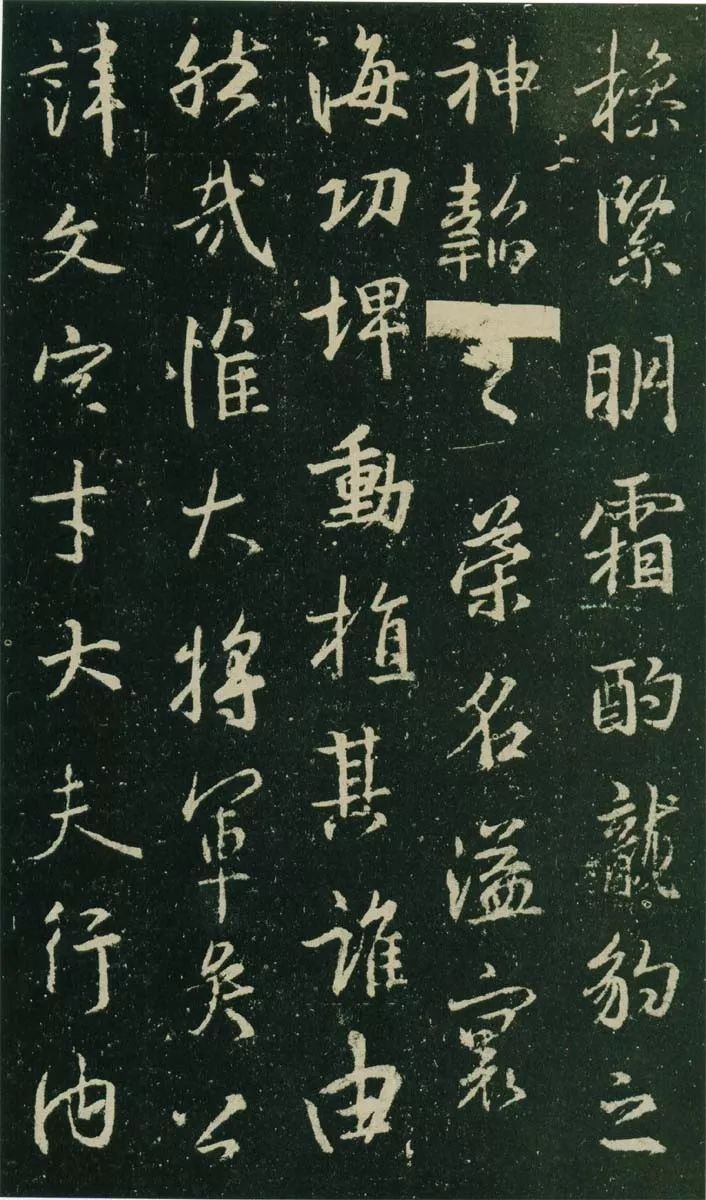 操緊明霜酌龍豹之
神韜之榮名溢寰
海功埤動植其誰由
然哉惟大將軍矣公
諱文字才大夫行内